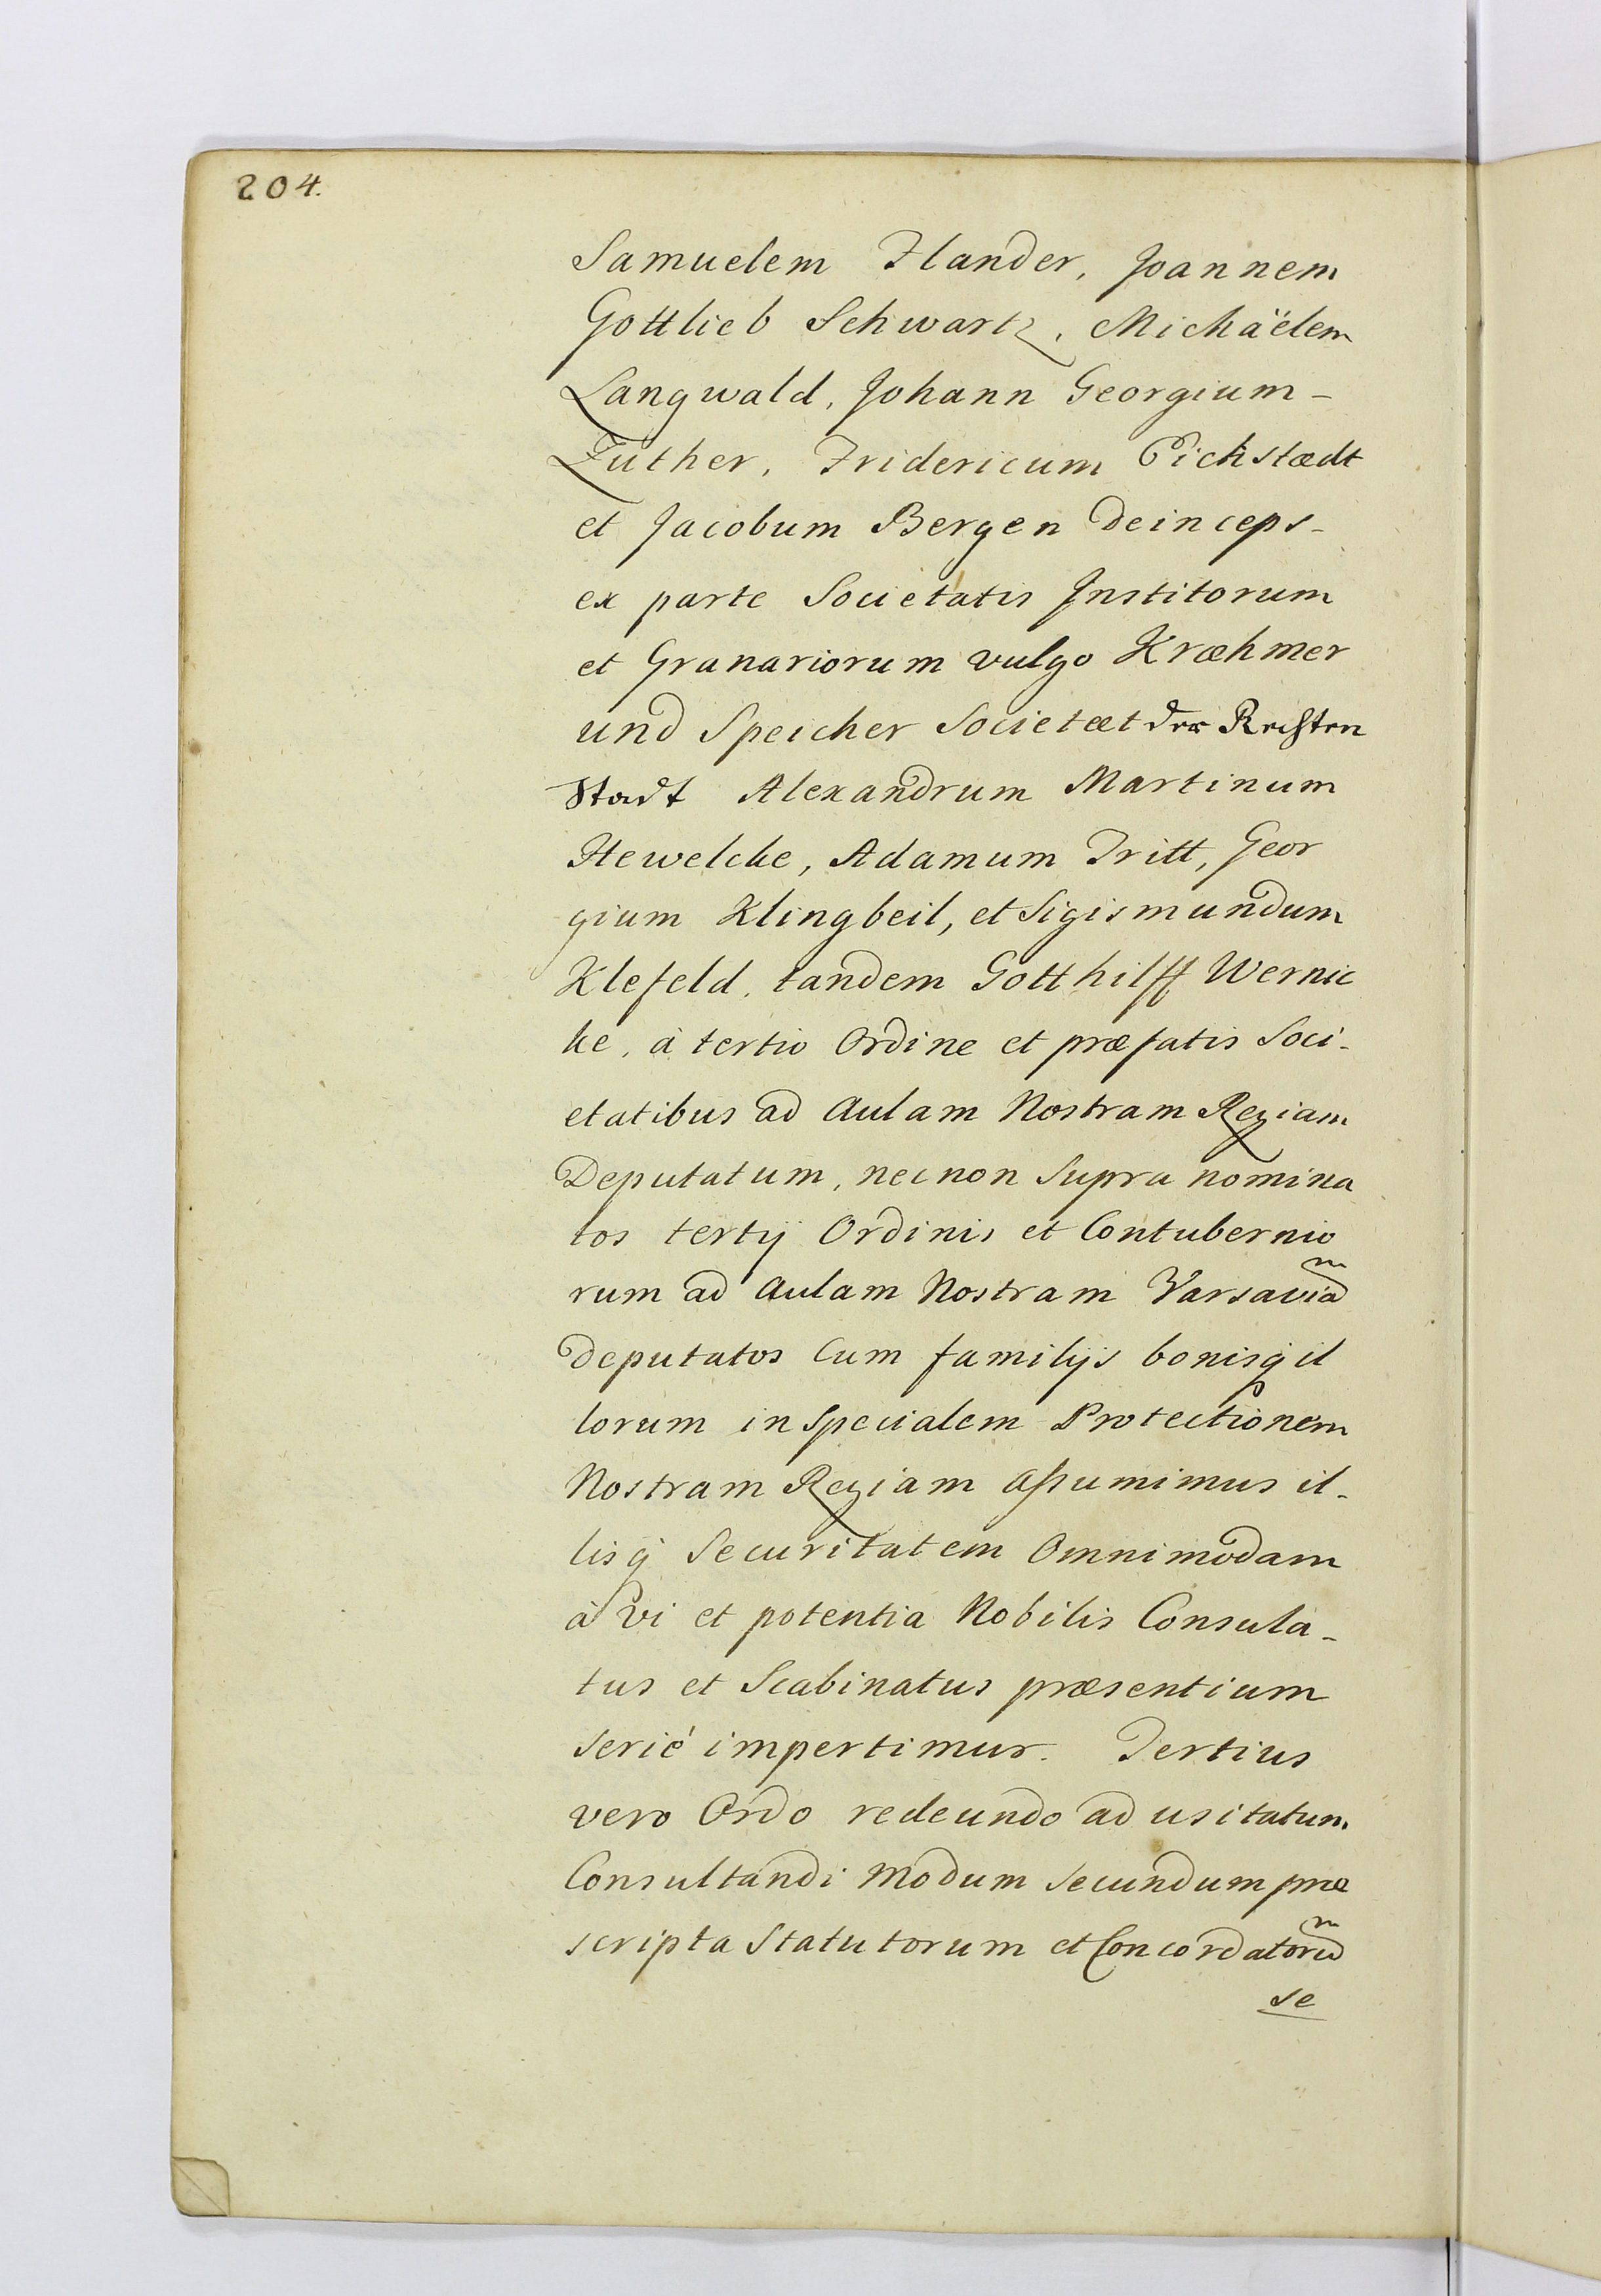 204.
Samuelem Flander, Joannem
Gottlieb Schwartz, Michaëlem
Langwald, Johann Georgium-
Zuther, Fridericum Eichstædt
et Jacobum Bergen deinceps-
ex parte Societatis Institorum
et Granariorum vulgo Kræhmer
und Speicher Societæt der Rechten
Stadt Alexandrum Martinum
Hewelcke, Adamum Tritt, Geor
gium Klingbeil, et Sigismundum
Klefeld, tandem Gotthilff Wernic
ke, à tertio Ordine et præfatis Soci-
etatibus ad Aulam Nostram Regiam
Deputatum, necnon Supra nomina
tos tertij Ordinis et Contubernio
rum ad Aulam Nostram Varsavia͠m
deputatos Cum familijs bonisq́ il
lorum in Specialem Protectionem
Nostram Regiam Aſsumimus il-
lisq́ Securitatem Omnimodam
à vi et potentia Nobilis Consula-
tus et Scabinatus præsentium
serié impertimur. Tertius
vero Ordo redeundo ad usitatum
Consultandi Modum secundum præ
scripta Statutorum et Concordatoru͠m
se